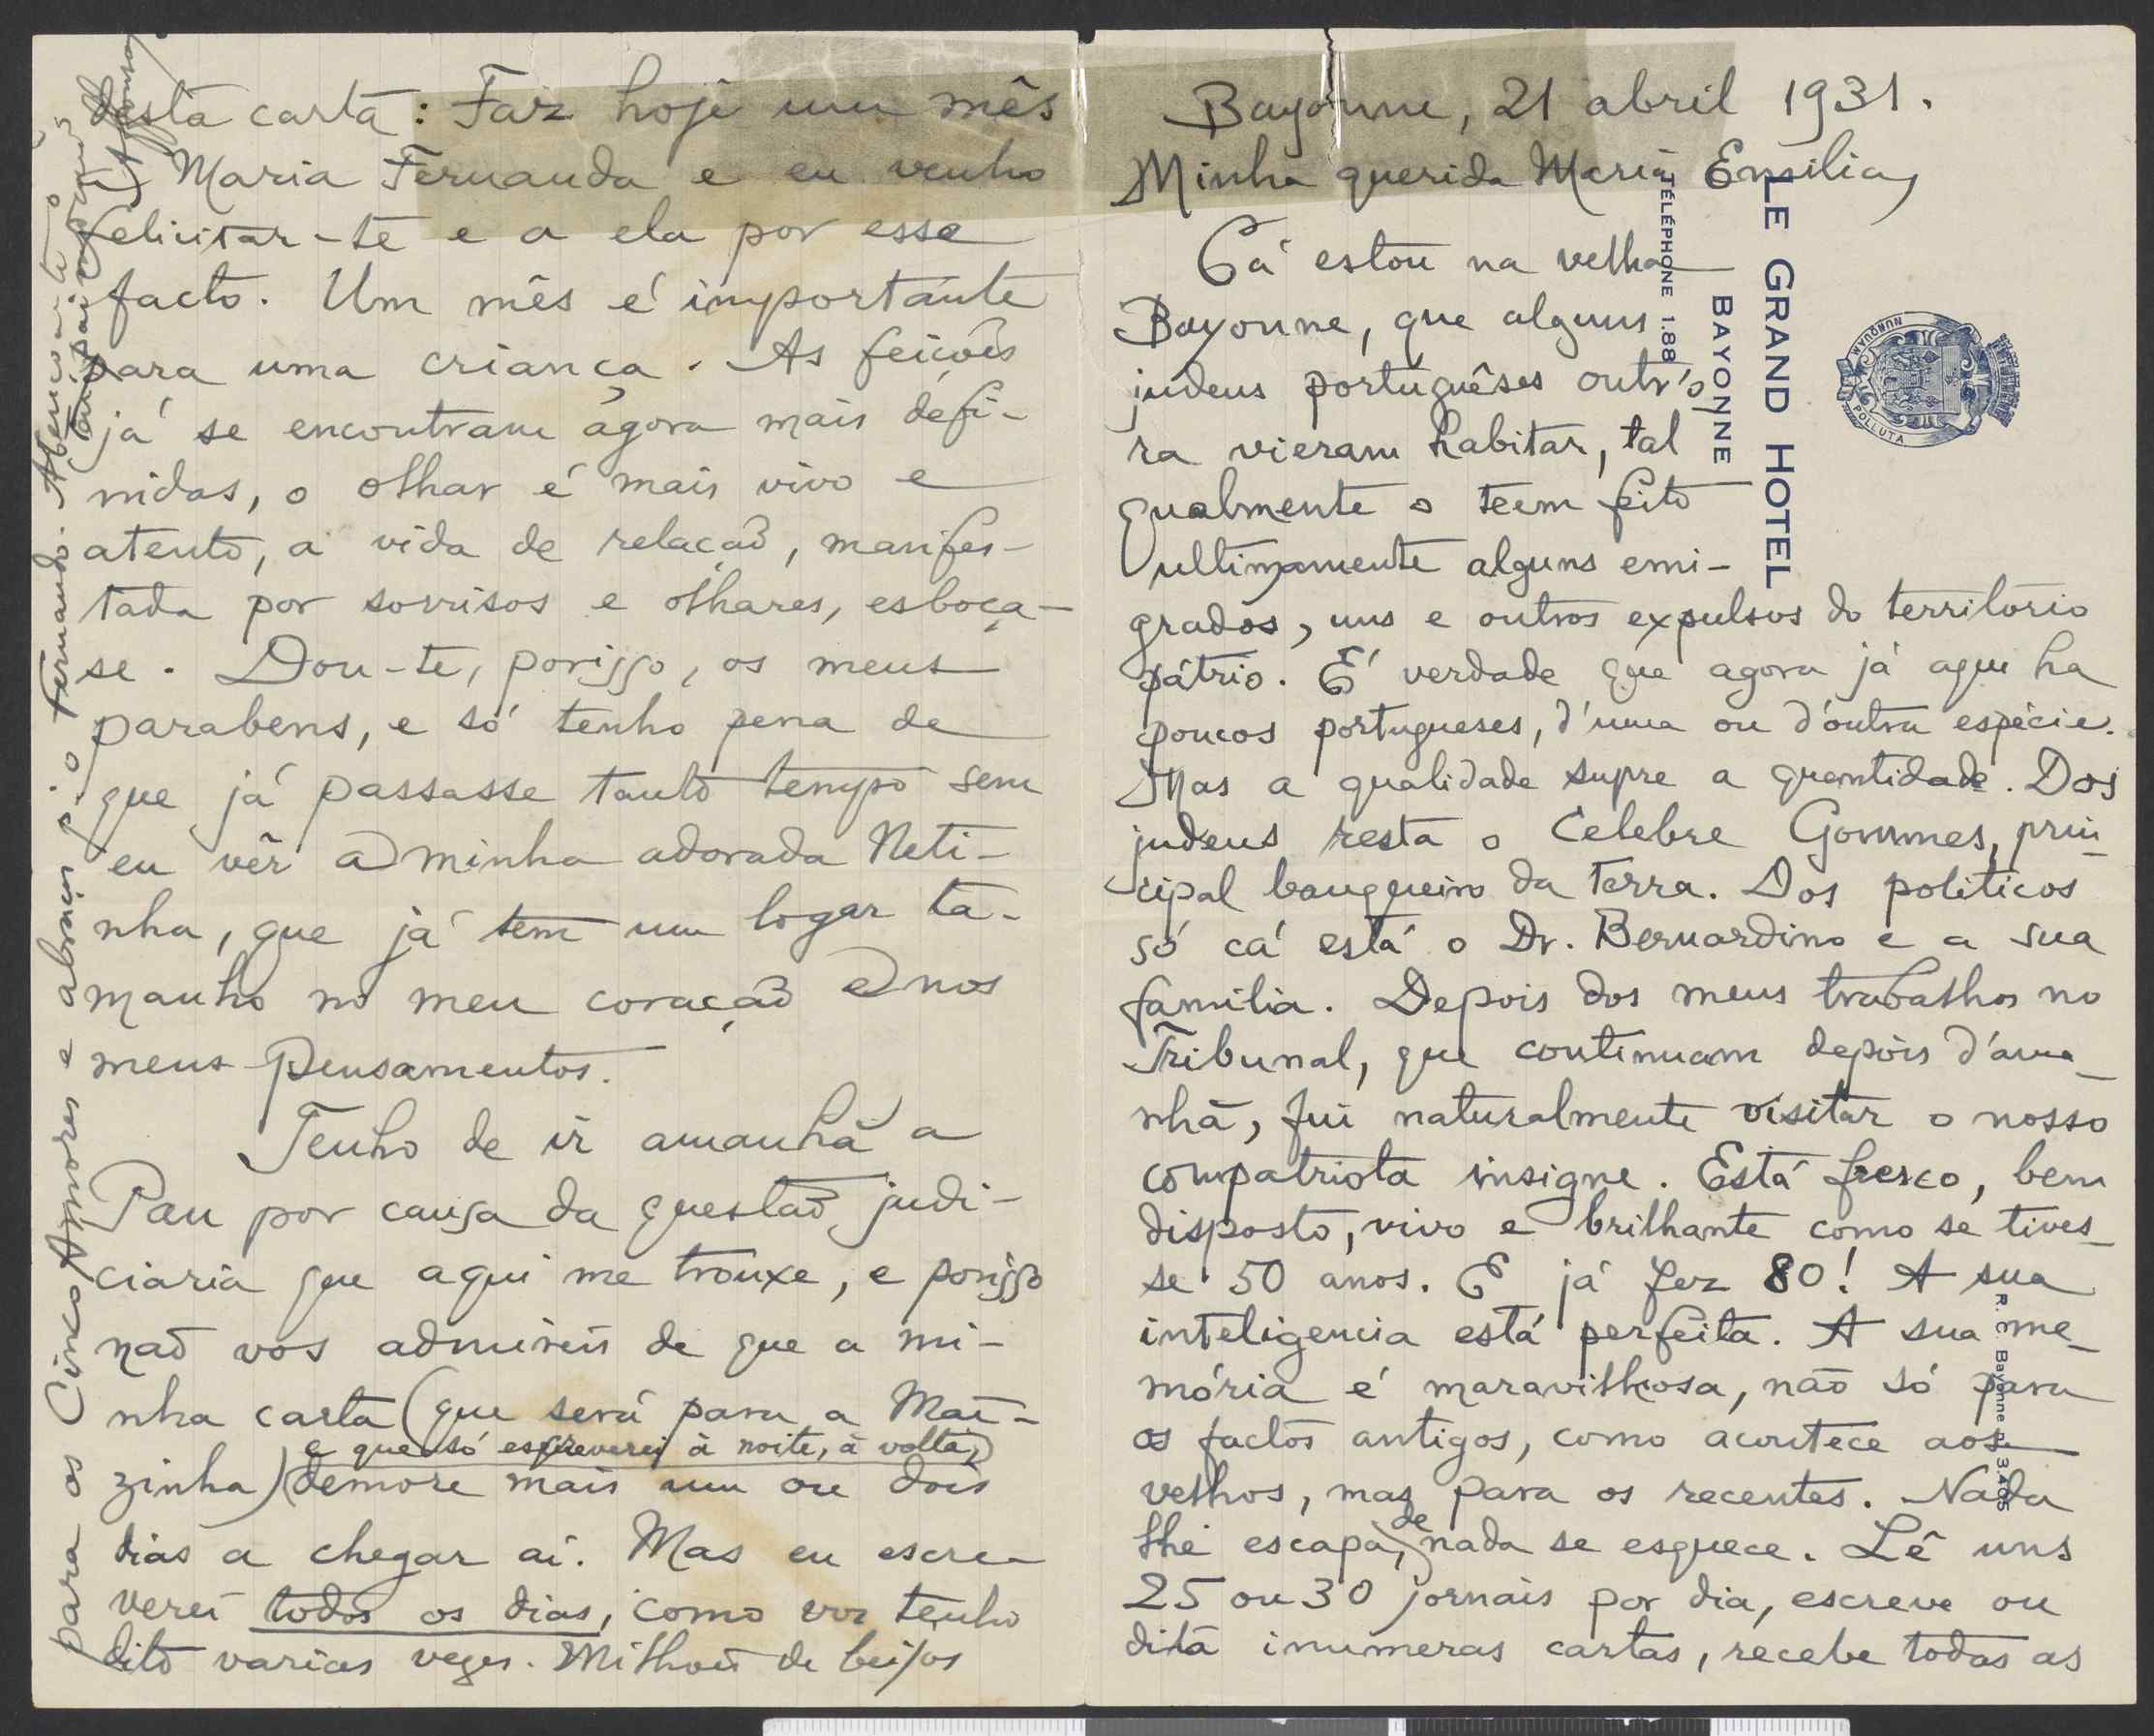 LE GRAND HOTEL
BAYONNE
TÉLÉPHONE 1.88
NUNQUAM
POLLUTA
Bayonne, 21 abril 1931.
Minha querida Maria Emilia,
Cá estou na velha
Bayonne, que alguns
judeus portuguêses outró-
ra vieram habitar, tal
qualmente o teem feito
ultimamente alguns emi-
grados, uns e outros expulsos do territorio
pátrio. É verdade que agora já aqui ha
poucos portugueses, d'uma ou d'outra espécie.
Mas a qualidade supre a quantidade. Dos
judeus resta o celebre Gommes, prin-
cipal banqueiro da terra. Dos politicos
só cá está o Dr. Bernardino e a sua
familia. Depois dos meus trabalhos no
Tribunal, que continuam depois d'áma-
nhã, fui naturalmente visitar o nosso
compatriota insigne. Está fresco, bem
disposto, vivo e brilhante como se tives-
se 50 anos. E já fez 80! A sua
inteligencia está perfeita. A sua me-
mória é maravilhosa, não só para
os factos antigos, como acontece aos
velhos, mas para os recentes. Nada
lhe escapa, de nada se esquece. Lê uns
25 ou 30 jornais por dia, escreve ou
dita inumeras cartas, recebe todas as
R. C. Bayonne 3.405
desta carta: Faz hoje um mês
a Maria Fernanda e eu venho
felicitar-te e a ela por esse
facto. Um mês é importante
para uma criança. As feições
já se encontram agora mais defi-
nidas, o olhar é mais vivo e
atento, a vida de relação, manifes-
tada por sorrisos e olhares, esboça-
se. Dou-te, porisso, os meus
parabens, e só tenho pena de
que já passasse tanto tempo sem
eu vêr a minha adorada Neti-
nha, que já tem um logar ta-
manho no meu coração e nos
meus pensamentos.
Tenho de ir amanhã a
Pau por causa da questão judi-
ciaria que aqui me trouxe, e porisso
não vos admireis de que a mi-
nha carta (que será para a Mãi-
zinha) (e que só escreverei à noite, à volta,)
demore mais um ou dois
dias a chegar aí. Mas eu escre-
verei todos os dias, como vos tenho
dito varias vezes. Milhões de beijos
para os Cinco Amores e abraços p.ª o Fernando. Abençoa-te o
teu pai
Affonso